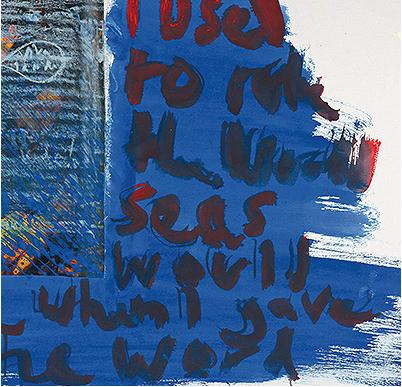 I used
to rule
the World
seas
would
when I gave
he word